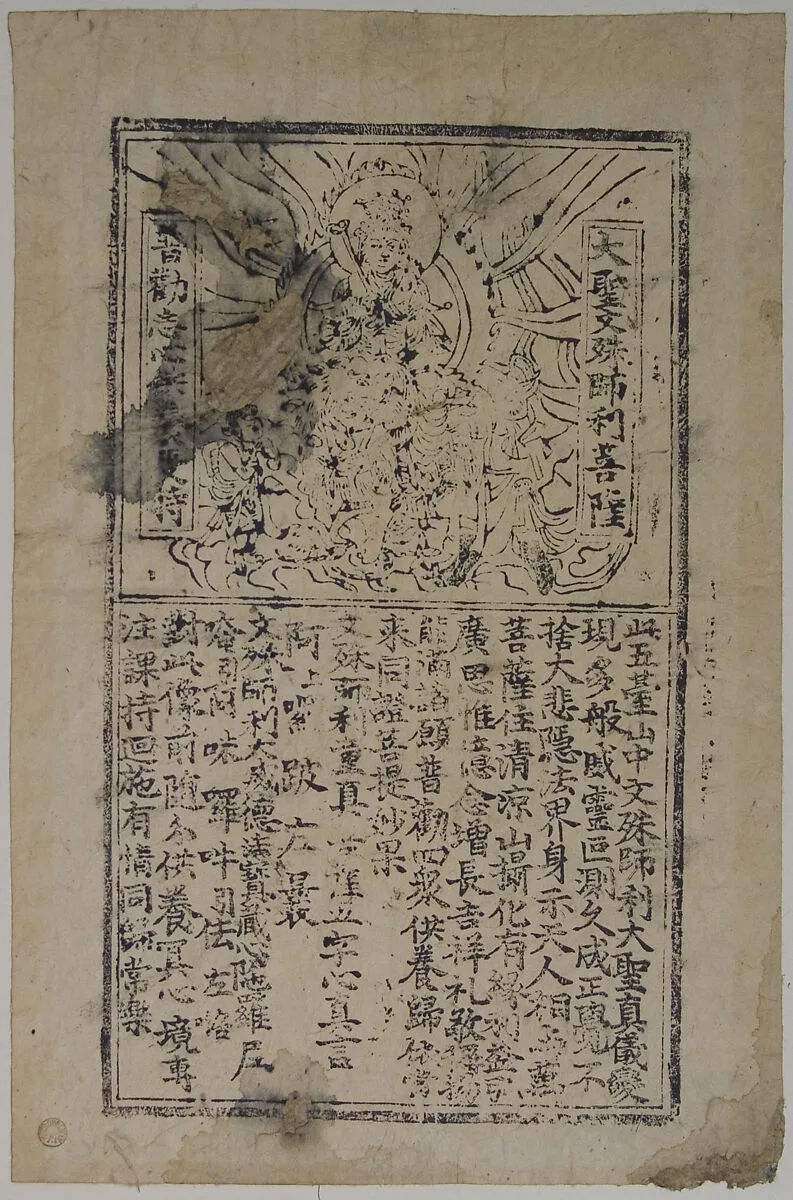 大聖文殊師利菩薩
普勸志心供養受持
此五臺山中文殊師利大聖真儀變
現多般威靈叵測久成正覺不
捨大悲隱法界身示天人相與萬
菩薩住清涼山攝化有緣利益弘
廣思惟憶念增長吉祥礼敬稱揚
能滿諸願普勸四眾供養歸依當
來同證菩提妙果
文殊師利童真菩薩五字心真言
阿上囉 跛 左 曩
文殊師利大威德法寶藏心陀羅尼
唵引阿味囉吽引佉左咯
對此像前隨分供養冥心一境專
注課持迴施有情同歸常樂